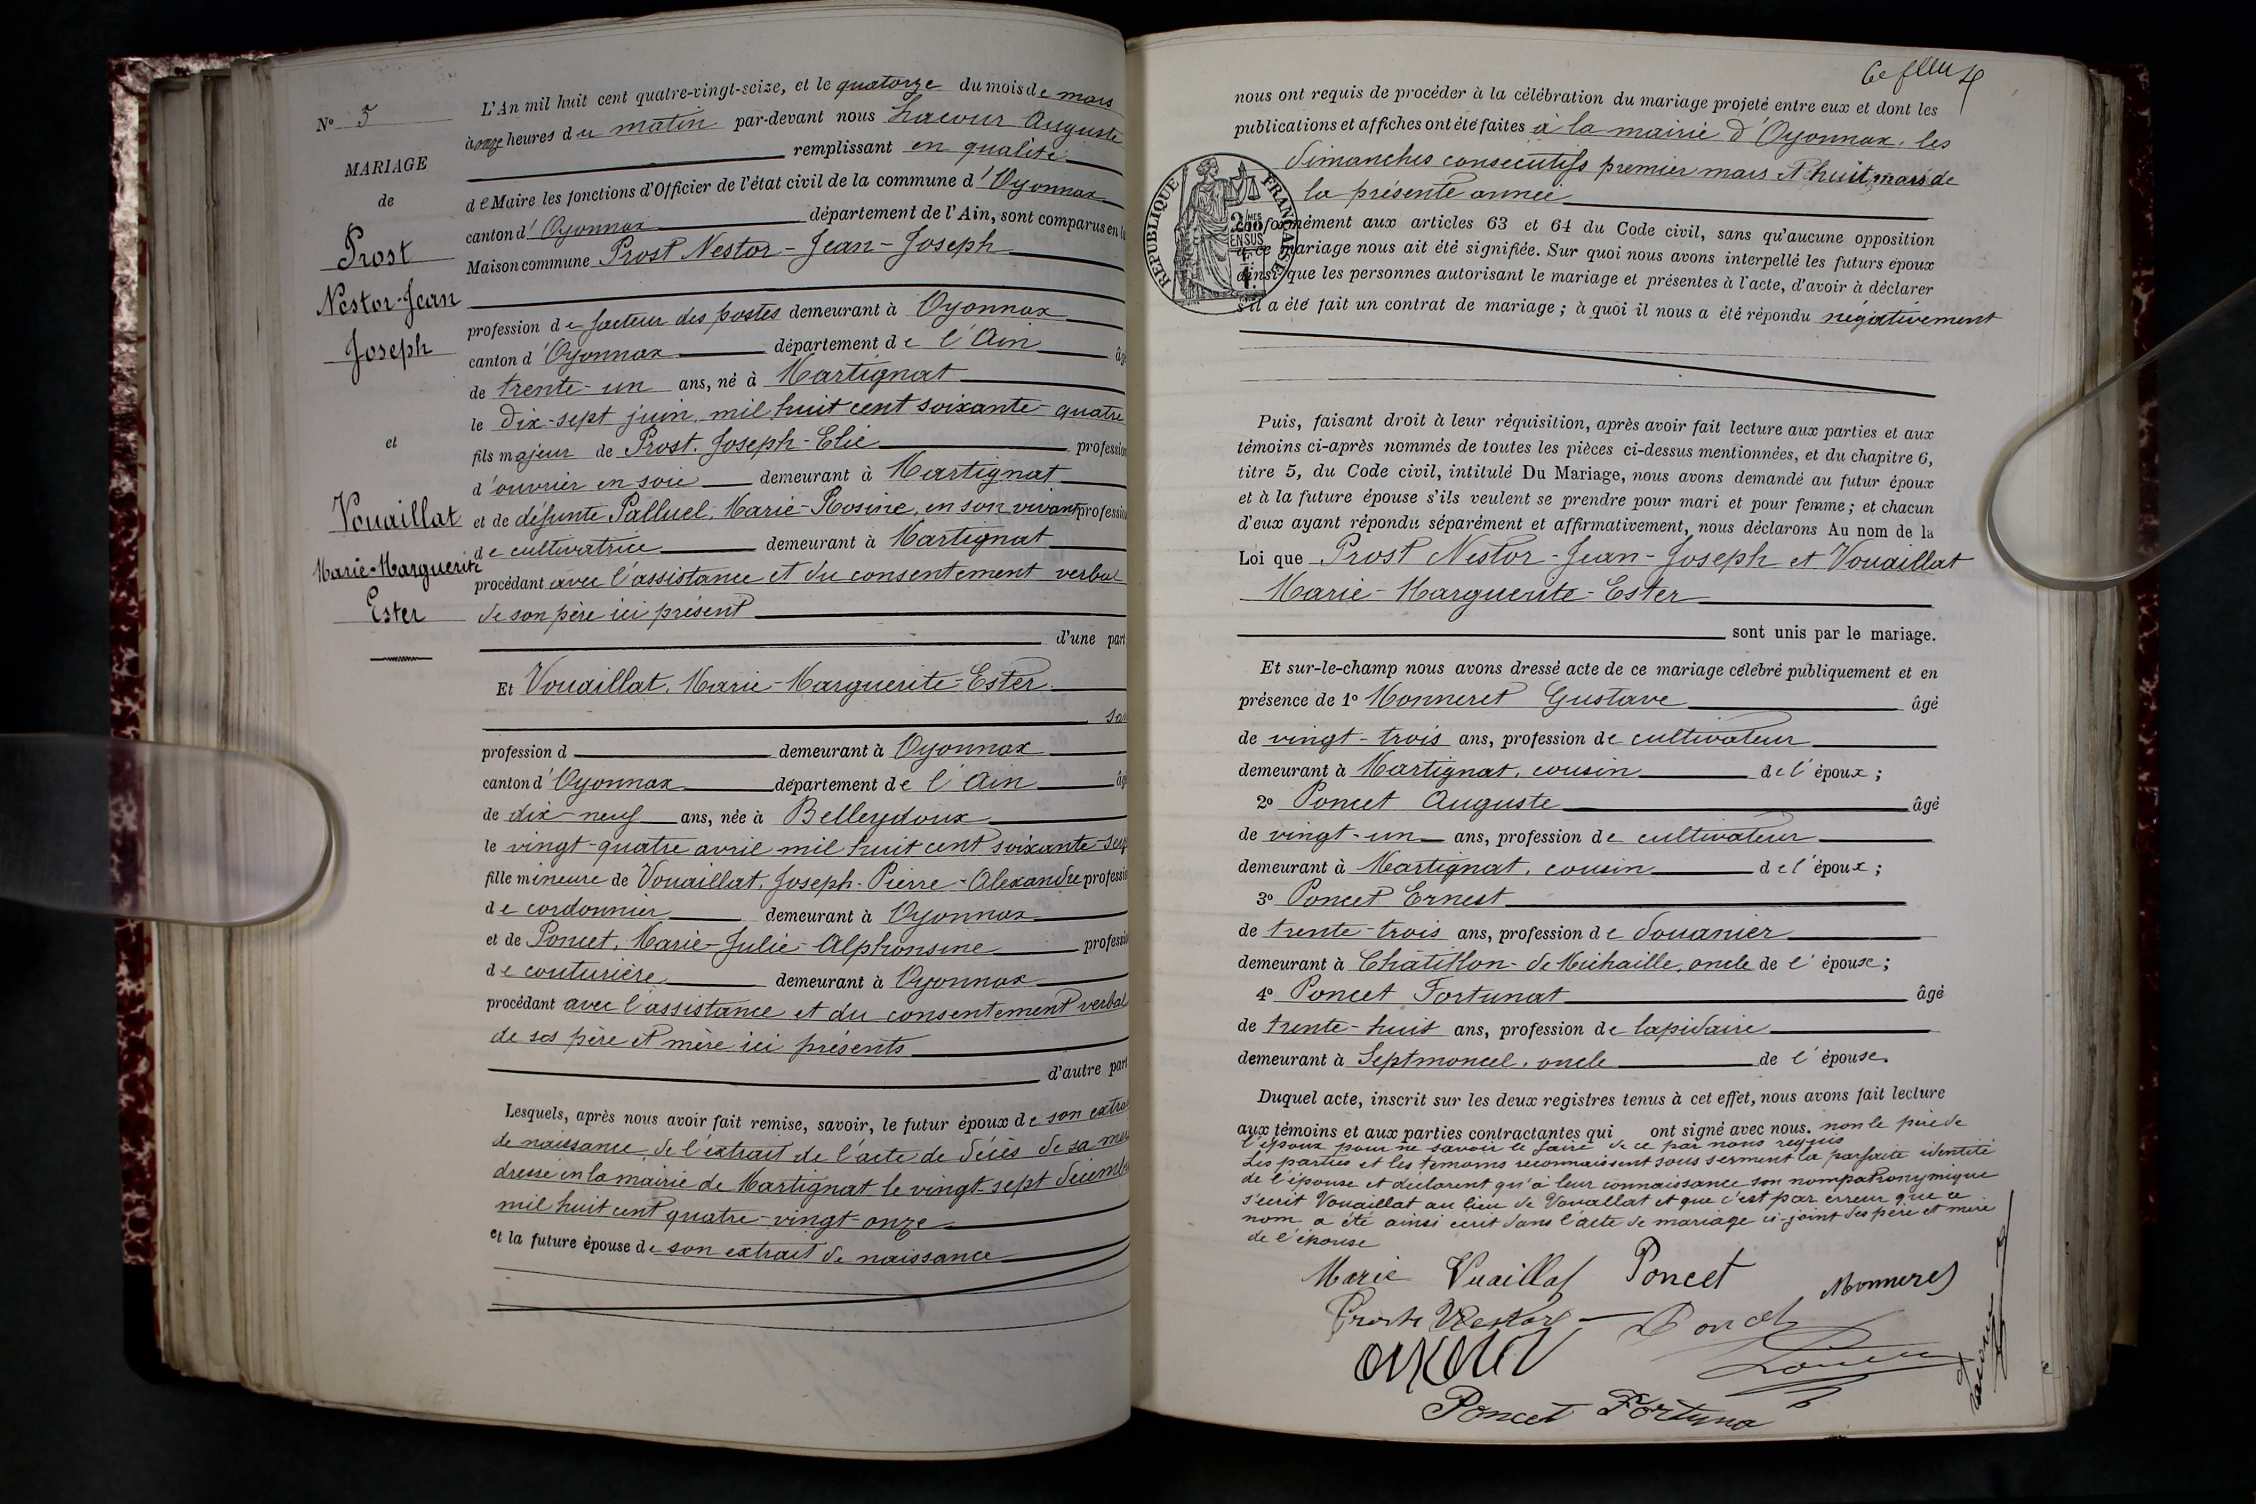 L'An mil huit cent quatre-vingt-seize, et le quatorze du mois de mars
à onze heures du matin par-devant nous Lacour Auguste
remplissant en qualité
de Maire les fonctions d'Officier de l'état civil de la commune d'Oyonnax
canton d'Oyonnax département de l'Ain, sont comparus en la
Maison commune Prost Nestor-Jean-Joseph
profession de facteur des postes demeurant à Oyonnax
canton d'Oyonnax département de l'Ain âgé
de trente-un ans, né à Martignat
le dix-sept juin mil huit cent soixante-quatre
fils majeur de Prost Joseph-Elie profession
d'ouvrier en soie demeurant à Martignat
et de défunte Palluel, Marie-Rosine, en son vivant profession
de cultivatrice demeurant à Martignat
procédant avec l'assistance et du consentement verbal
de son père ici présent
d'une part
Et Vouaillat, Marie-Marguerite-Ester
san
profession d demeurant à Oyonnax
canton d'Oyonnax département de l'Ain âgé
de dix-neuf ans, née à Belleydoux
le vingt-quatre avril mil huit cent soixante-sei
fille mineure de Vouaillat, Joseph-Pierre-Alexandre professio
de cordonnier demeurant à Oyonnax
et de Poncet, Marie-Julie-Alphonsine professio
de couturière demeurant à Oyonnax
procédant avec l'assistance et du consentement verbal
de ses père et mère ici présents
d'autre part
Lesquels, après nous avoir fait remise, savoir, le futur époux de son extra
de naissance, de l'extrait de l'acte de décès de sa mère
dressé en la mairie de Martignat le vingt-sept décembre
mil huit cent quatre-vingt-onze
et la future épouse de son extrait de naissance
N° 5
MARIAGE
de
Prost
Nestor-Jean
Joseph
et
Vouaillat
Marie-Marguerite
Ester
nous ont requis de procéder à la célébration du mariage projeté entre eux et dont les
publications et affiches ont été faites à la mairie d'Oyonnax, les
dimanches consécutifs premier mars et huit mars de
la présente année
RÉPUBLIQUE FRANÇAISE
conformément aux articles 63 et 64 du Code civil, sans qu'aucune opposition
à ce mariage nous ait été signifiée. Sur quoi nous avons interpellé les futurs époux
ainsi que les personnes autorisant le mariage et présentes à l'acte, d'avoir à déclarer
s'il a été fait un contrat de mariage ; à quoi il nous a été répondu négativement
Puis, faisant droit à leur réquisition, après avoir fait lecture aux parties et aux
témoins ci-après nommés de toutes les pièces ci-dessus mentionnées, et du chapitre 6,
titre 5, du Code civil, intitulé Du Mariage, nous avons demandé au futur époux
et à la future épouse s'ils veulent se prendre pour mari et pour femme ; et chacun
d'eux ayant répondu séparément et affirmativement, nous déclarons Au nom de la
Loi que Prost Nestor-Jean-Joseph et Vouaillat
Marie-Marguerite-Ester
sont unis par le mariage.
Et sur-le-champ nous avons dressé acte de ce mariage célébré publiquement et en
présence de 1° Monneret Gustave âgé
de vingt-trois ans, profession de cultivateur
demeurant à Martignat, cousin de l'époux ;
2° Poncet Auguste âgé
de vingt-un ans, profession de cultivateur
demeurant à Martignat, cousin de l'époux ;
3° Poncet Ernest
de trente-trois ans, profession de douanier
demeurant à Châtillon-de-Michaille, oncle de l'épouse ;
4° Poncet Fortunat âgé
de trente-huit ans, profession de lapidaire
demeurant à Septmoncel, oncle de l'épouse.
Duquel acte, inscrit sur les deux registres tenus à cet effet, nous avons fait lecture
aux témoins et aux parties contractantes qui ont signé avec nous. non le père de
l'époux pour ne savoir le faire de ce par nous requis
Les parties et les témoins reconnaissent sous serment la parfaite identité
de l'épouse et déclarent qu'à leur connaissance son nom patronymique
s'écrit Vouaillat au lieu de Vouallat et que c'est par erreur que ce
nom a été ainsi écrit dans l'acte de mariage ci-joint des père et mère
de l'épouse
Marie Vuaillat Poncet Monneret
Prost Nestor Poncet
Poncet Fortuna
Lacour